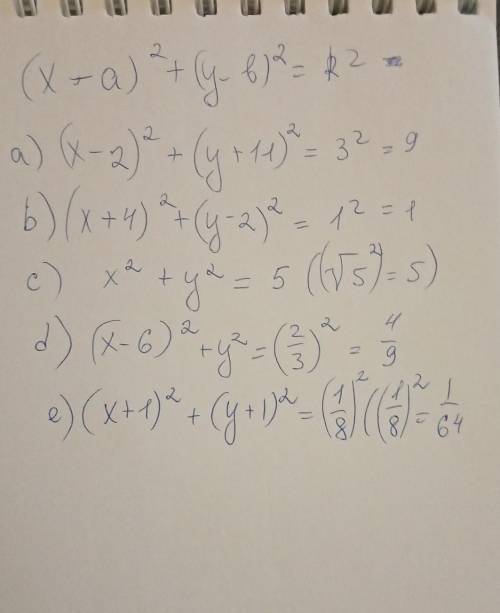 (x - a)² + (y - b)² = R² -
a) (x - 2)² + (y + 11)² = 3² = 9
b) (x + 4)² + (y - 2)² = 1² = 1
c) x² + y² = 5 ((√5)² = 5)
d) (x - 6)² + y² = (2/3)² = 4/9
e) (x + 1)² + (y + 1)² = (1/8)² ((1/8)² = 1/64